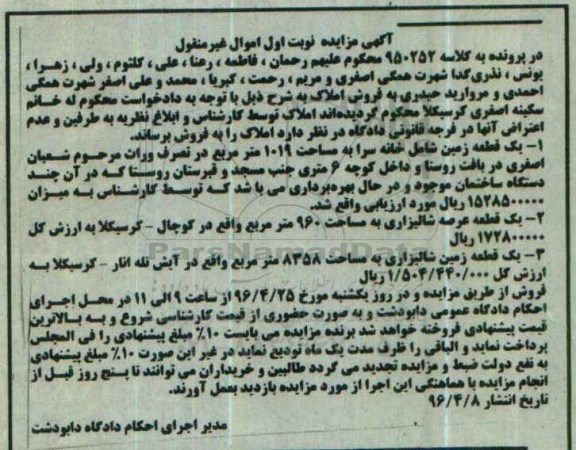 آگهی مزایده نوبت اول اموال غیرمنقول
در پرونده به کلاسه ۹۵۰۲۵۲ محکوم علیهم رحمان ، فاطمه ، رعنا ، علی ، کلثوم ، ولی ، زهـرا ،
یونس ، نذری‌گدا شهرت همگی اصغری و مریم ، رحمت ، کبریا ، محمد و علی اصغر شهرت همگی
احمدی و مروارید حیدری به فروش املاک به شرح ذیل با توجه به دادخواست محکوم له خـانم
سکینه اصغری کرسیکلا محکوم گردیده‌اند املاک توسط کارشناس و ابلاغ نظریه به طرفین و عدم
اعتراض آنها در فرجه قانونی دادگاه در نظر دارد املاک را به فروش برساند.
۱- یک قطعه زمین شامل خانه سرا به مساحت ۱۰۱۹ متر مربع در تصرف وراث مرحـوم شـعبان
اصغری در بافت روستا و داخل کوچه ۶ متری جنب مسجد و قبرستان روسـتا کـه در آن چنـد
دستگاه ساختمان موجود و در حال بهره‌برداری می با شد کـه توسـط کارشـناس بـه میـزان
۱۵۲۸۵۰۰۰۰۰ ریال مورد ارزیابی واقع شد.
۲- یک قطعه عرصه شالیزاری به مساحت ۹۶۰ متر مربع واقع در کوچال - کرسیکلا به ارزش کل
۱۷۲۸۰۰۰۰۰ ریال
ParsNamadData
۳- یک قطعه زمین شالیزاری به مساحت ۸۳۵۸ متر مربع واقع در آیش تله انار - کرسیکلا بـه
ارزش کل ۱/۵۰۴/۴۴۰/۰۰۰ ریال
فروش از طریق مزایده و در روز یکشنبه مورخ ۹۶/۴/۲۵ از ساعت ۹ الی ۱۱ در محـل اجـرای
احکام دادگاه عمومی دابودشت و به صورت حضوری از قیمت کارشناسی شروع و بـه بـالاترین
قیمت پیشنهادی فروخته خواهد شد برنده مزایده می بایست ۱۰٪ مبلغ پیشنهادی را فی المجلس
پرداخت نماید و الباقی را ظرف مدت یک ماه تودیع نماید در غیر این صورت ۱۰٪ مبلغ پیشنهادی
به نفع دولت ضبط و مزایده تجدید می گردد طالبین و خریداران می توانند تا پـنج روز قبـل از
انجام مزایده با هماهنگی این اجرا از مورد مزایده بازدید بعمل آورند.
تاریخ انتشار ۹۶/۴/۸
مدیر اجرای احکام دادگاه دابودشت